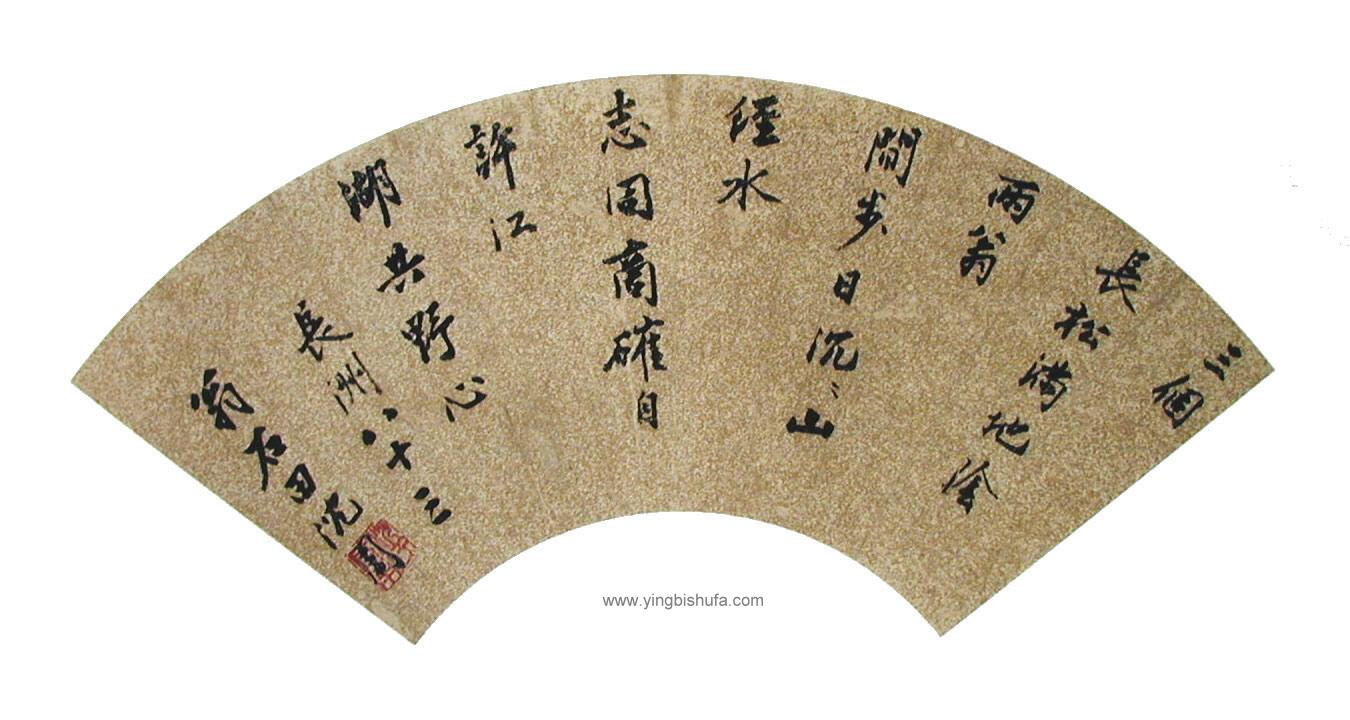 三個
長松滿地陰
兩翁
閒步日沉〻山
經水
志同商確自
許江
湖共野心
長洲八十三
翁石田沈周
www.yingbishufa.com